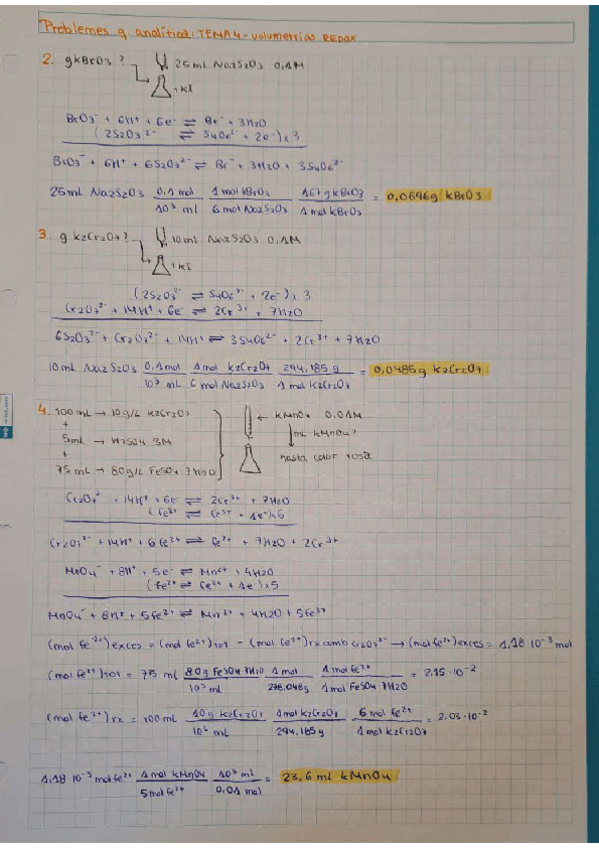 Problemes q. analítica: TEMA 4 - volumetrías REDOX
2. g KBrO3 ? 25 mL Na2S2O3 0,1M
+KI
BrO3⁻ + 6H⁺ + 6e⁻ ⇌ Br⁻ + 3H2O
(2S2O3²⁻ ⇌ S4O6²⁻ + 2e⁻) x 3
BrO3⁻ + 6H⁺ + 6S2O3²⁻ ⇌ Br⁻ + 3H2O + 3S4O6²⁻
25 mL Na2S2O3 0,1 mol / 10³ mL 1 mol KBrO3 / 6 mol Na2S2O3 167 g KBrO3 / 1 mol KBrO3 = 0,0696 g KBrO3
3. g K2Cr2O7 ? 10 mL Na2S2O3 0,1M
+KI
(2S2O3²⁻ ⇌ S4O6²⁻ + 2e⁻) x 3
Cr2O7²⁻ + 14H⁺ + 6e⁻ ⇌ 2Cr³⁺ + 7H2O
6S2O3²⁻ + Cr2O7²⁻ + 14H⁺ ⇌ 3S4O6²⁻ + 2Cr³⁺ + 7H2O
10 mL Na2S2O3 0,1 mol / 10³ mL 1 mol K2Cr2O7 / 6 mol Na2S2O3 294,185 g / 1 mol K2Cr2O7 = 0,0485 g K2Cr2O7
4. 100 mL → 10 g/L K2Cr2O7 ← KMnO4 0,01M
+
5 mL → H2SO4 3M mL KMnO4?
+
75 mL → 80 g/L FeSO4 7H2O hasta color rosa
Cr2O7²⁻ + 14H⁺ + 6e⁻ ⇌ 2Cr³⁺ + 7H2O
(Fe²⁺ ⇌ Fe³⁺ + 1e⁻) x 6
Cr2O7²⁻ + 14H⁺ + 6Fe²⁺ ⇌ Fe³⁺ + 7H2O + 2Cr³⁺
MnO4⁻ + 8H⁺ + 5e⁻ ⇌ Mn²⁺ + 4H2O
(Fe²⁺ ⇌ Fe²⁺ + 1e⁻) x 5
MnO4⁻ + 8H⁺ + 5Fe²⁺ ⇌ Mn²⁺ + 4H2O + 5Fe³⁺
(mol Fe²⁺) exces = (mol Fe²⁺) tot - (mol Fe²⁺) rx amb Cr2O7²⁻ → (mol Fe²⁺) exces = 1,18·10⁻³ mol
(mol Fe²⁺) tot = 75 mL 80 g FeSO4 7H2O / 10³ mL 1 mol / 278,048 g 1 mol Fe²⁺ / 1 mol FeSO4 7H2O = 2,15·10⁻²
(mol Fe²⁺) rx = 100 mL 10 g K2Cr2O7 / 10³ mL 1 mol K2Cr2O7 / 294,185 g 6 mol Fe²⁺ / 1 mol K2Cr2O7 = 2,03·10⁻²
1,18·10⁻³ mol Fe²⁺ 1 mol KMnO4 / 5 mol Fe²⁺ 10³ mL / 0,01 mol = 23,6 mL KMnO4